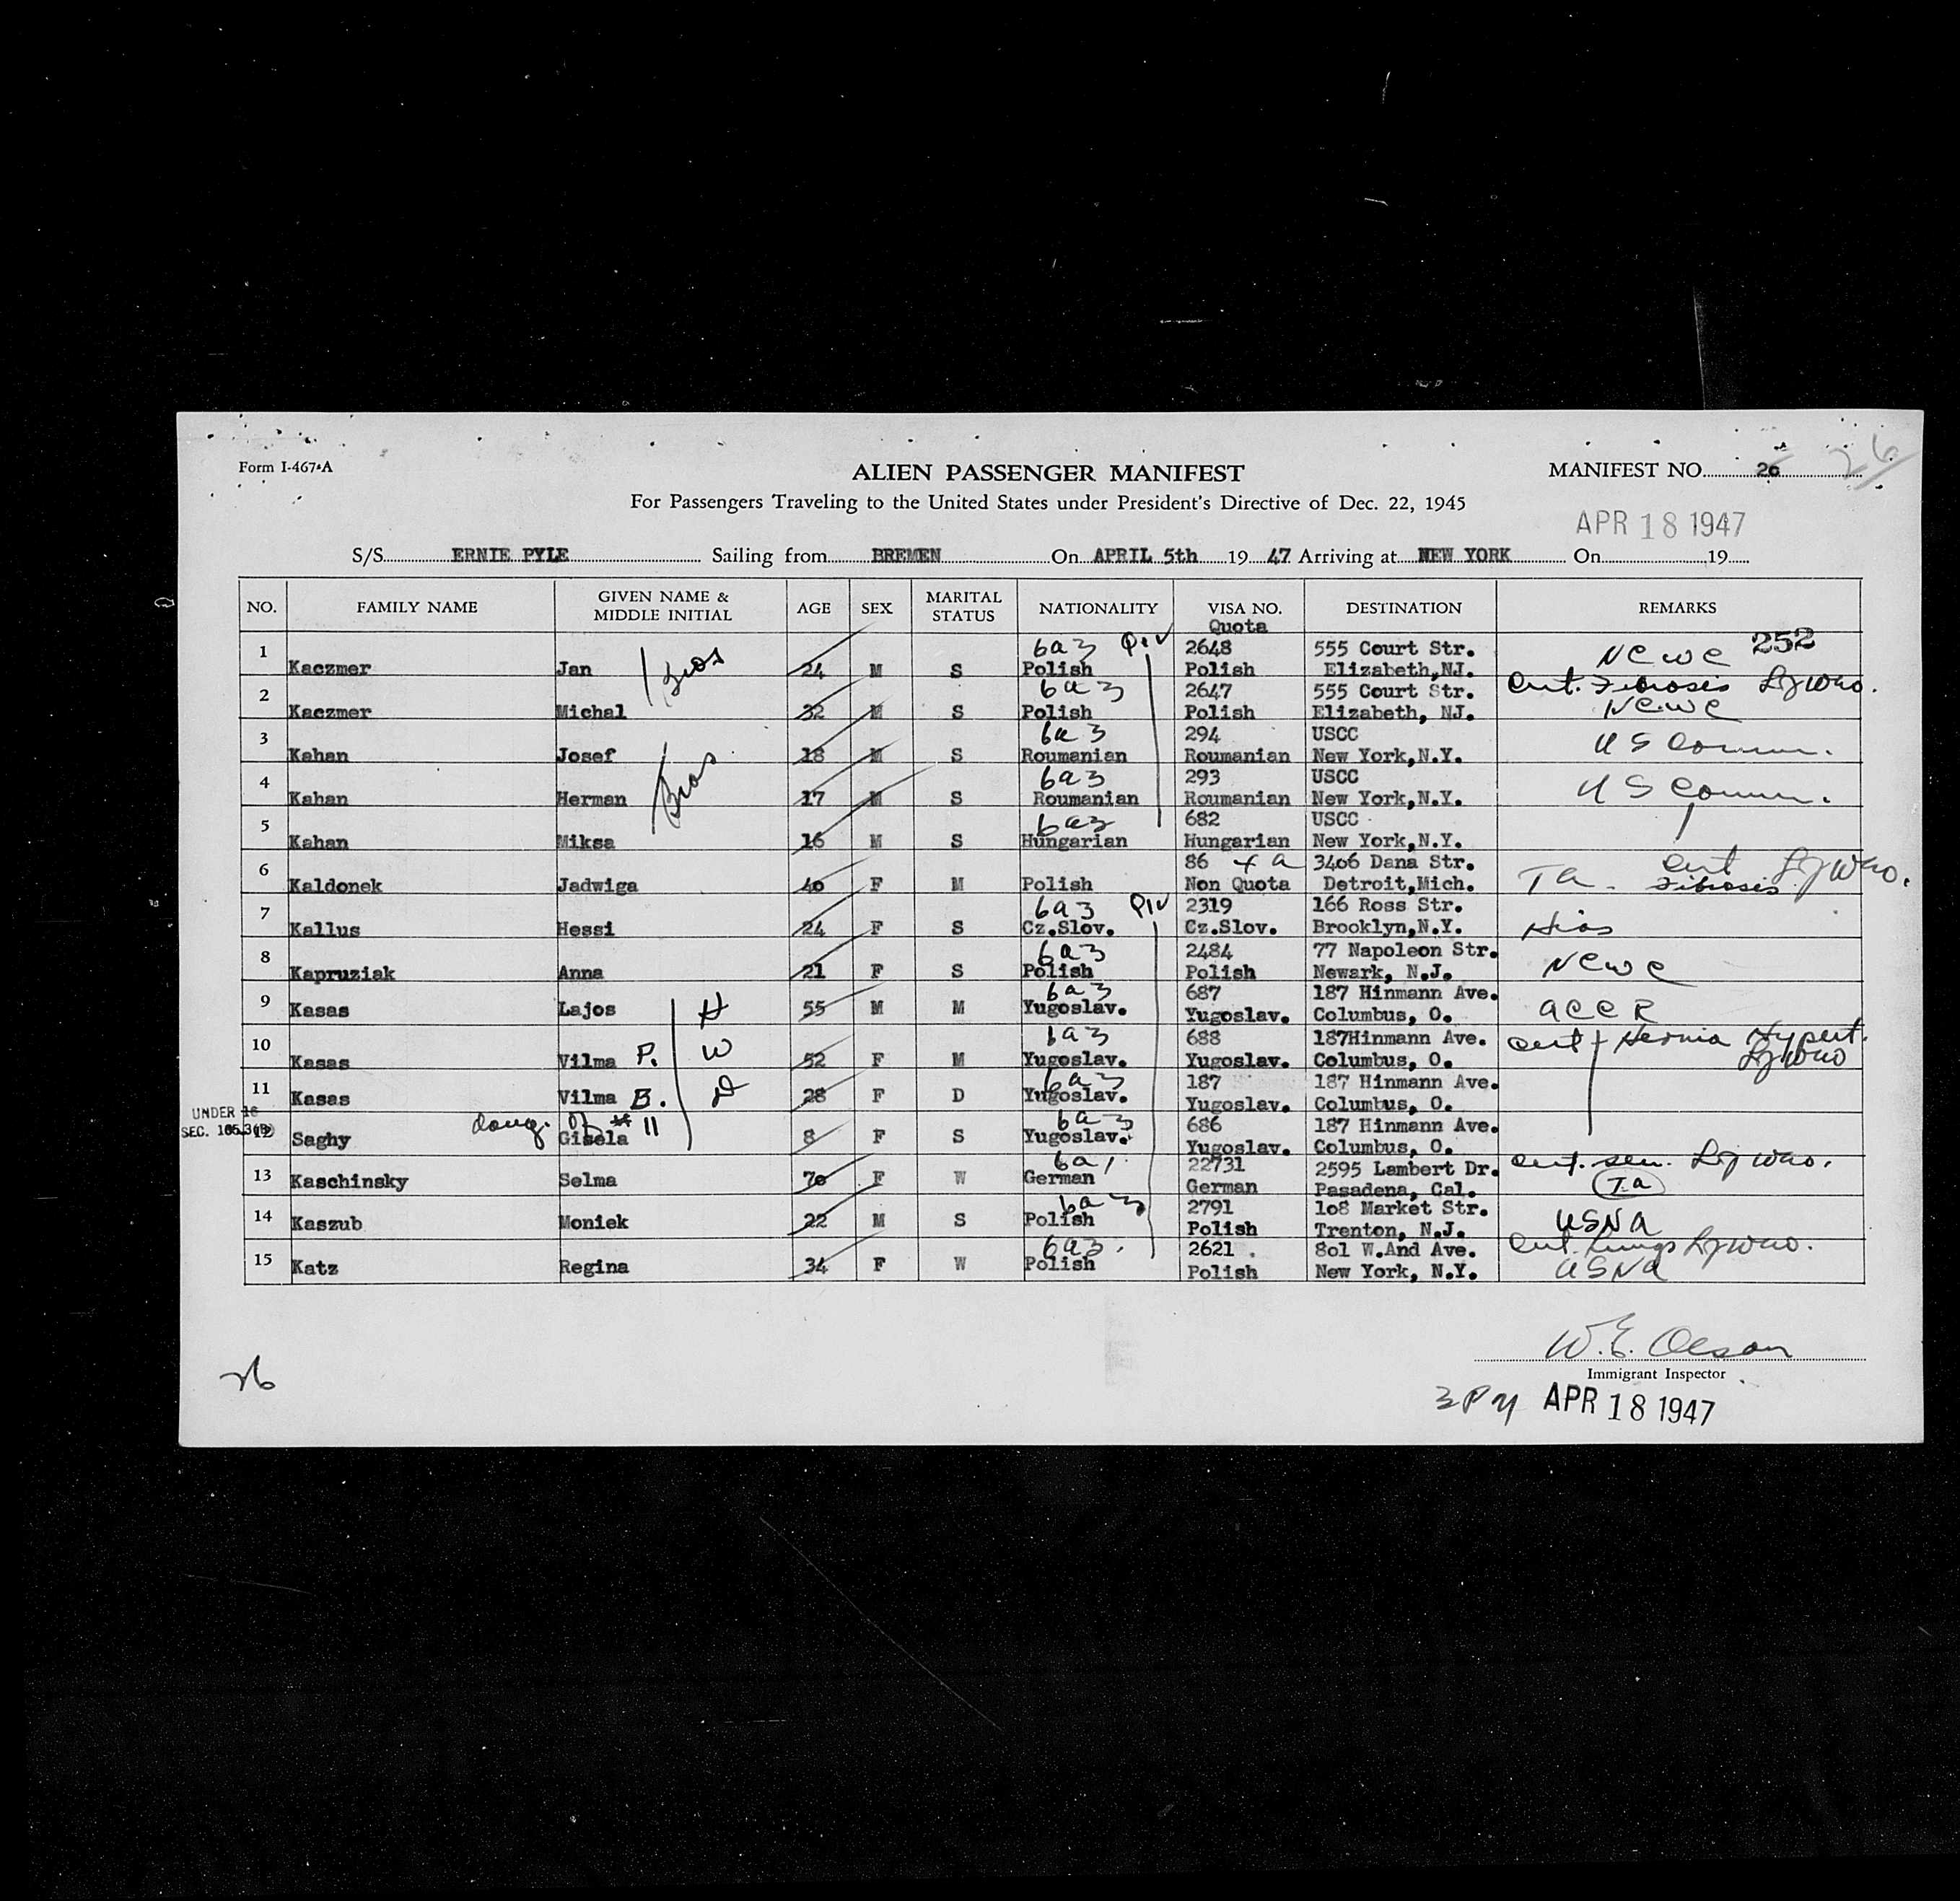 Form I-467-A
ALIEN PASSENGER MANIFEST
MANIFEST NO. 26 26
For Passengers Traveling to the United States under President's Directive of Dec. 22, 1945
APR 18 1947
S/S ERNIE PYLE Sailing from BREMEN On APRIL 5th 19 47 Arriving at NEW YORK On 19
NO. FAMILY NAME GIVEN NAME & MIDDLE INITIAL AGE SEX MARITAL STATUS NATIONALITY VISA NO. Quota DESTINATION REMARKS
6a3 QIV 2648 555 Court Str. 252
1 Kaczmer Jan Bros 24 M S Polish Polish Elizabeth,NJ. NCWC
6a3 2647 555 Court Str. Cert. Fibrosis
2 Kaczmer Michal 32 M S Polish Polish Elizabeth, NJ. NCWC
6a3 294 USCC
3 Kahan Josef 18 M S Roumanian Roumanian New York,N.Y. US Comm.
6a3 293 USCC
4 Kahan Herman Bros 17 M S Roumanian Roumanian New York,N.Y. US Comm.
6a3 682 USCC
5 Kahan Miksa 16 M S Hungarian Hungarian New York,N.Y.
86 4a 3406 Dana Str. Cert
6 Kaldonek Jadwiga 40 F M Polish Non Quota Detroit,Mich. Ta. Fibrosis
6a3 QIV 2319 166 Ross Str.
7 Kallus Hessi 24 F S Cz.Slov. Cz.Slov. Brooklyn,N.Y. Hias
6a3 2484 77 Napoleon Str.
8 Kapruziak Anna 21 F S Polish Polish Newark, N.J. NCWC
6a3 687 187 Hinmann Ave.
9 Kasas Lajos H 55 M M Yugoslav. Yugoslav. Columbus, O. ACCR
6a3 688 187Hinmann Ave. Cert Hernia Hypert.
10 Kasas Vilma P. W 52 F M Yugoslav. Yugoslav. Columbus, O.
6a3 187 187 Hinmann Ave.
11 Kasas Vilma B. D 28 F D Yugoslav. Yugoslav. Columbus, O.
UNDER 16 daug. of #11 6a3 686 187 Hinmann Ave.
SEC. 165.3(B) 12 Saghy Gisela 8 F S Yugoslav. Yugoslav. Columbus, O.
6a1 22731 2595 Lambert Dr. Cert. sen.
13 Kaschinsky Selma 70 F W German German Pasadena, Cal. T.a
6a3 2791 108 Market Str.
14 Kaszub Moniek 22 M S Polish Polish Trenton, N.J. USNA
6a3 2621 801 W.And Ave. Cert. Lungs
15 Katz Regina 34 F W Polish Polish New York, N.Y. USNA
W. E. Olson
Immigrant Inspector
26
APR 18 1947